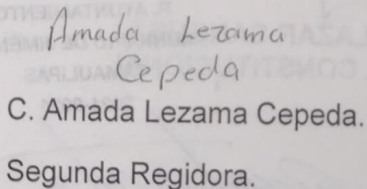 Amada Lezama
Cepeda
C. Amada Lezama Cepeda.
Segunda Regidora.